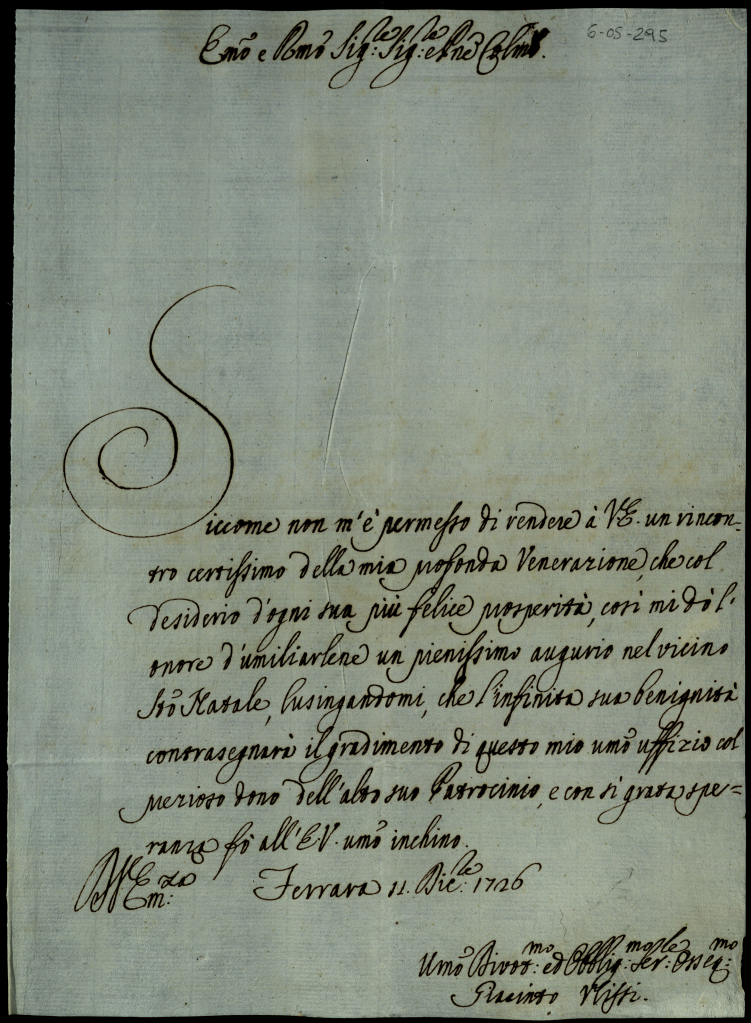 6-05-295
Emõ e Rmõ Sig:re Sig:re e Pnẽ Colmõ.
Siccome non m'è permesso di rendere à V.E. un rincon-
tro certissimo della mia profonda Venerazione, che col
desiderio d'ogni sua più felice prosperità, così mi dò l'
onore d'umiliarlene un pienissimo augurio nel vicino
Stõ Natale, lusingandomi, che l'infinita sua benignità
contrasegnarà il gradimento di questo mio umõ uffizio col
prezioso dono dell'alto suo Patrocinio, e con sì grata spe-
ranza fò all'E.V. umõ inchino.
Ferrara 11. Dic:re 1726
Umõ Divot:mo ed Obblig:mo Ser:re Osseq:mo
Giacinto